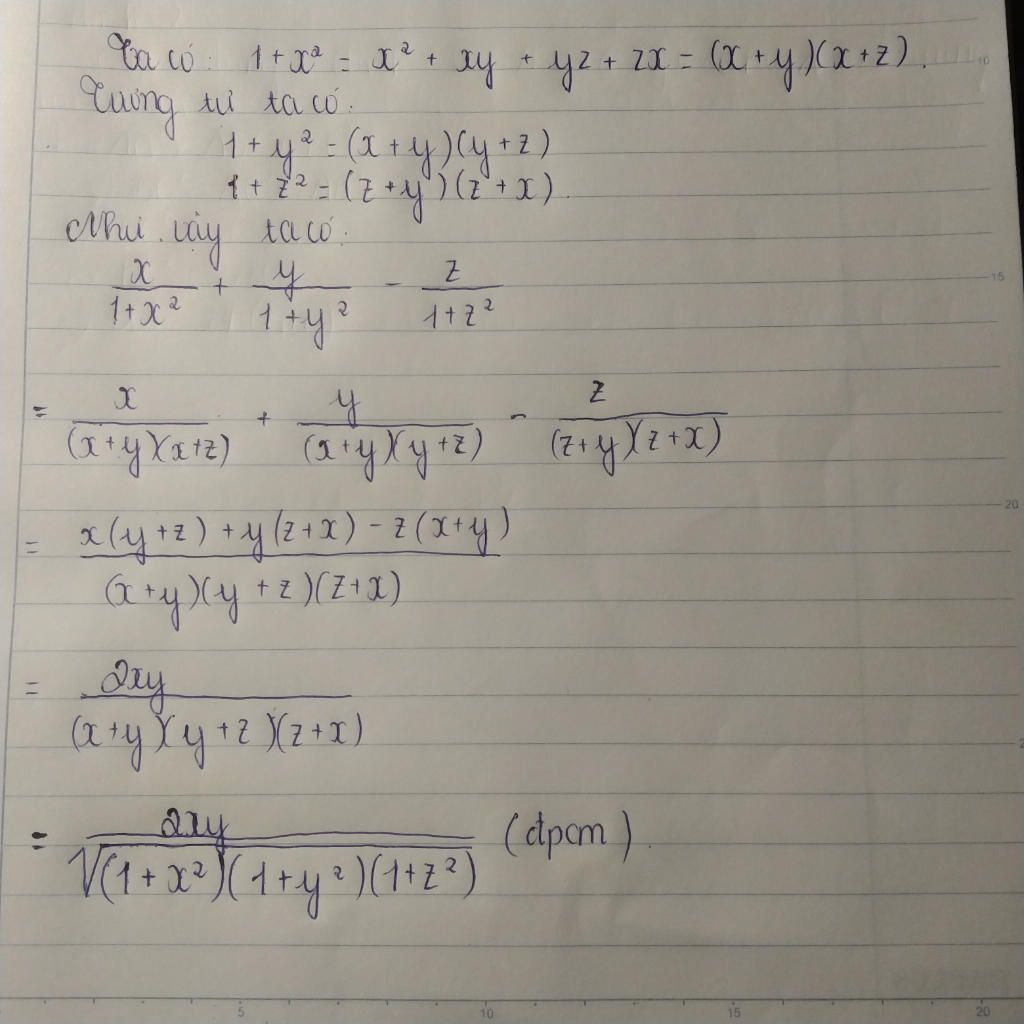 Ta có: 1 + x² = x² + xy + yz + zx = (x+y)(x+z).
Tương tự ta có:
1 + y² = (x+y)(y+z)
1 + z² = (z+y)(z+x).
Như vậy ta có:
x/(1+x²) + y/(1+y²) - z/(1+z²)
= x/((x+y)(x+z)) + y/((x+y)(y+z)) - z/((z+y)(z+x))
= (x(y+z) + y(z+x) - z(x+y))/((x+y)(y+z)(z+x))
= 2xy/((x+y)(y+z)(z+x))
= 2xy/√((1+x²)(1+y²)(1+z²)) (đpcm).
10
15
20
5 10 15 20